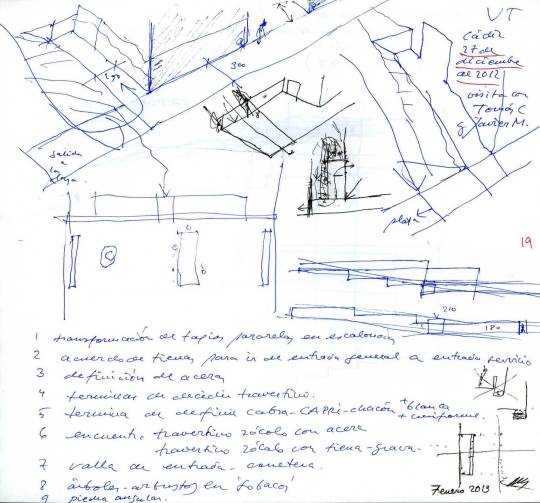 UT
Cádiz
27 de
diciembre
de 2012
visita con
Tomás C
y Javier M.
290
300
Salida
a
la
playa
playa
19
210
180
1 transformación de tapias paralelas en escalones
2 acuerdo de tierras para ir de entrada general a entrada servicio
3 definición de aceras
4 terminar de decidir travertino.
5 termina de definir cabra-CAPRI-chacón + blanca
+ uniforme.
6 encuentro travertino zócalo con acera
travertino zócalo con tierra-grava-...
7 valla en entrada-carretera.
8 árboles-arbustos en
9 piedra angular.
Febrero 2013